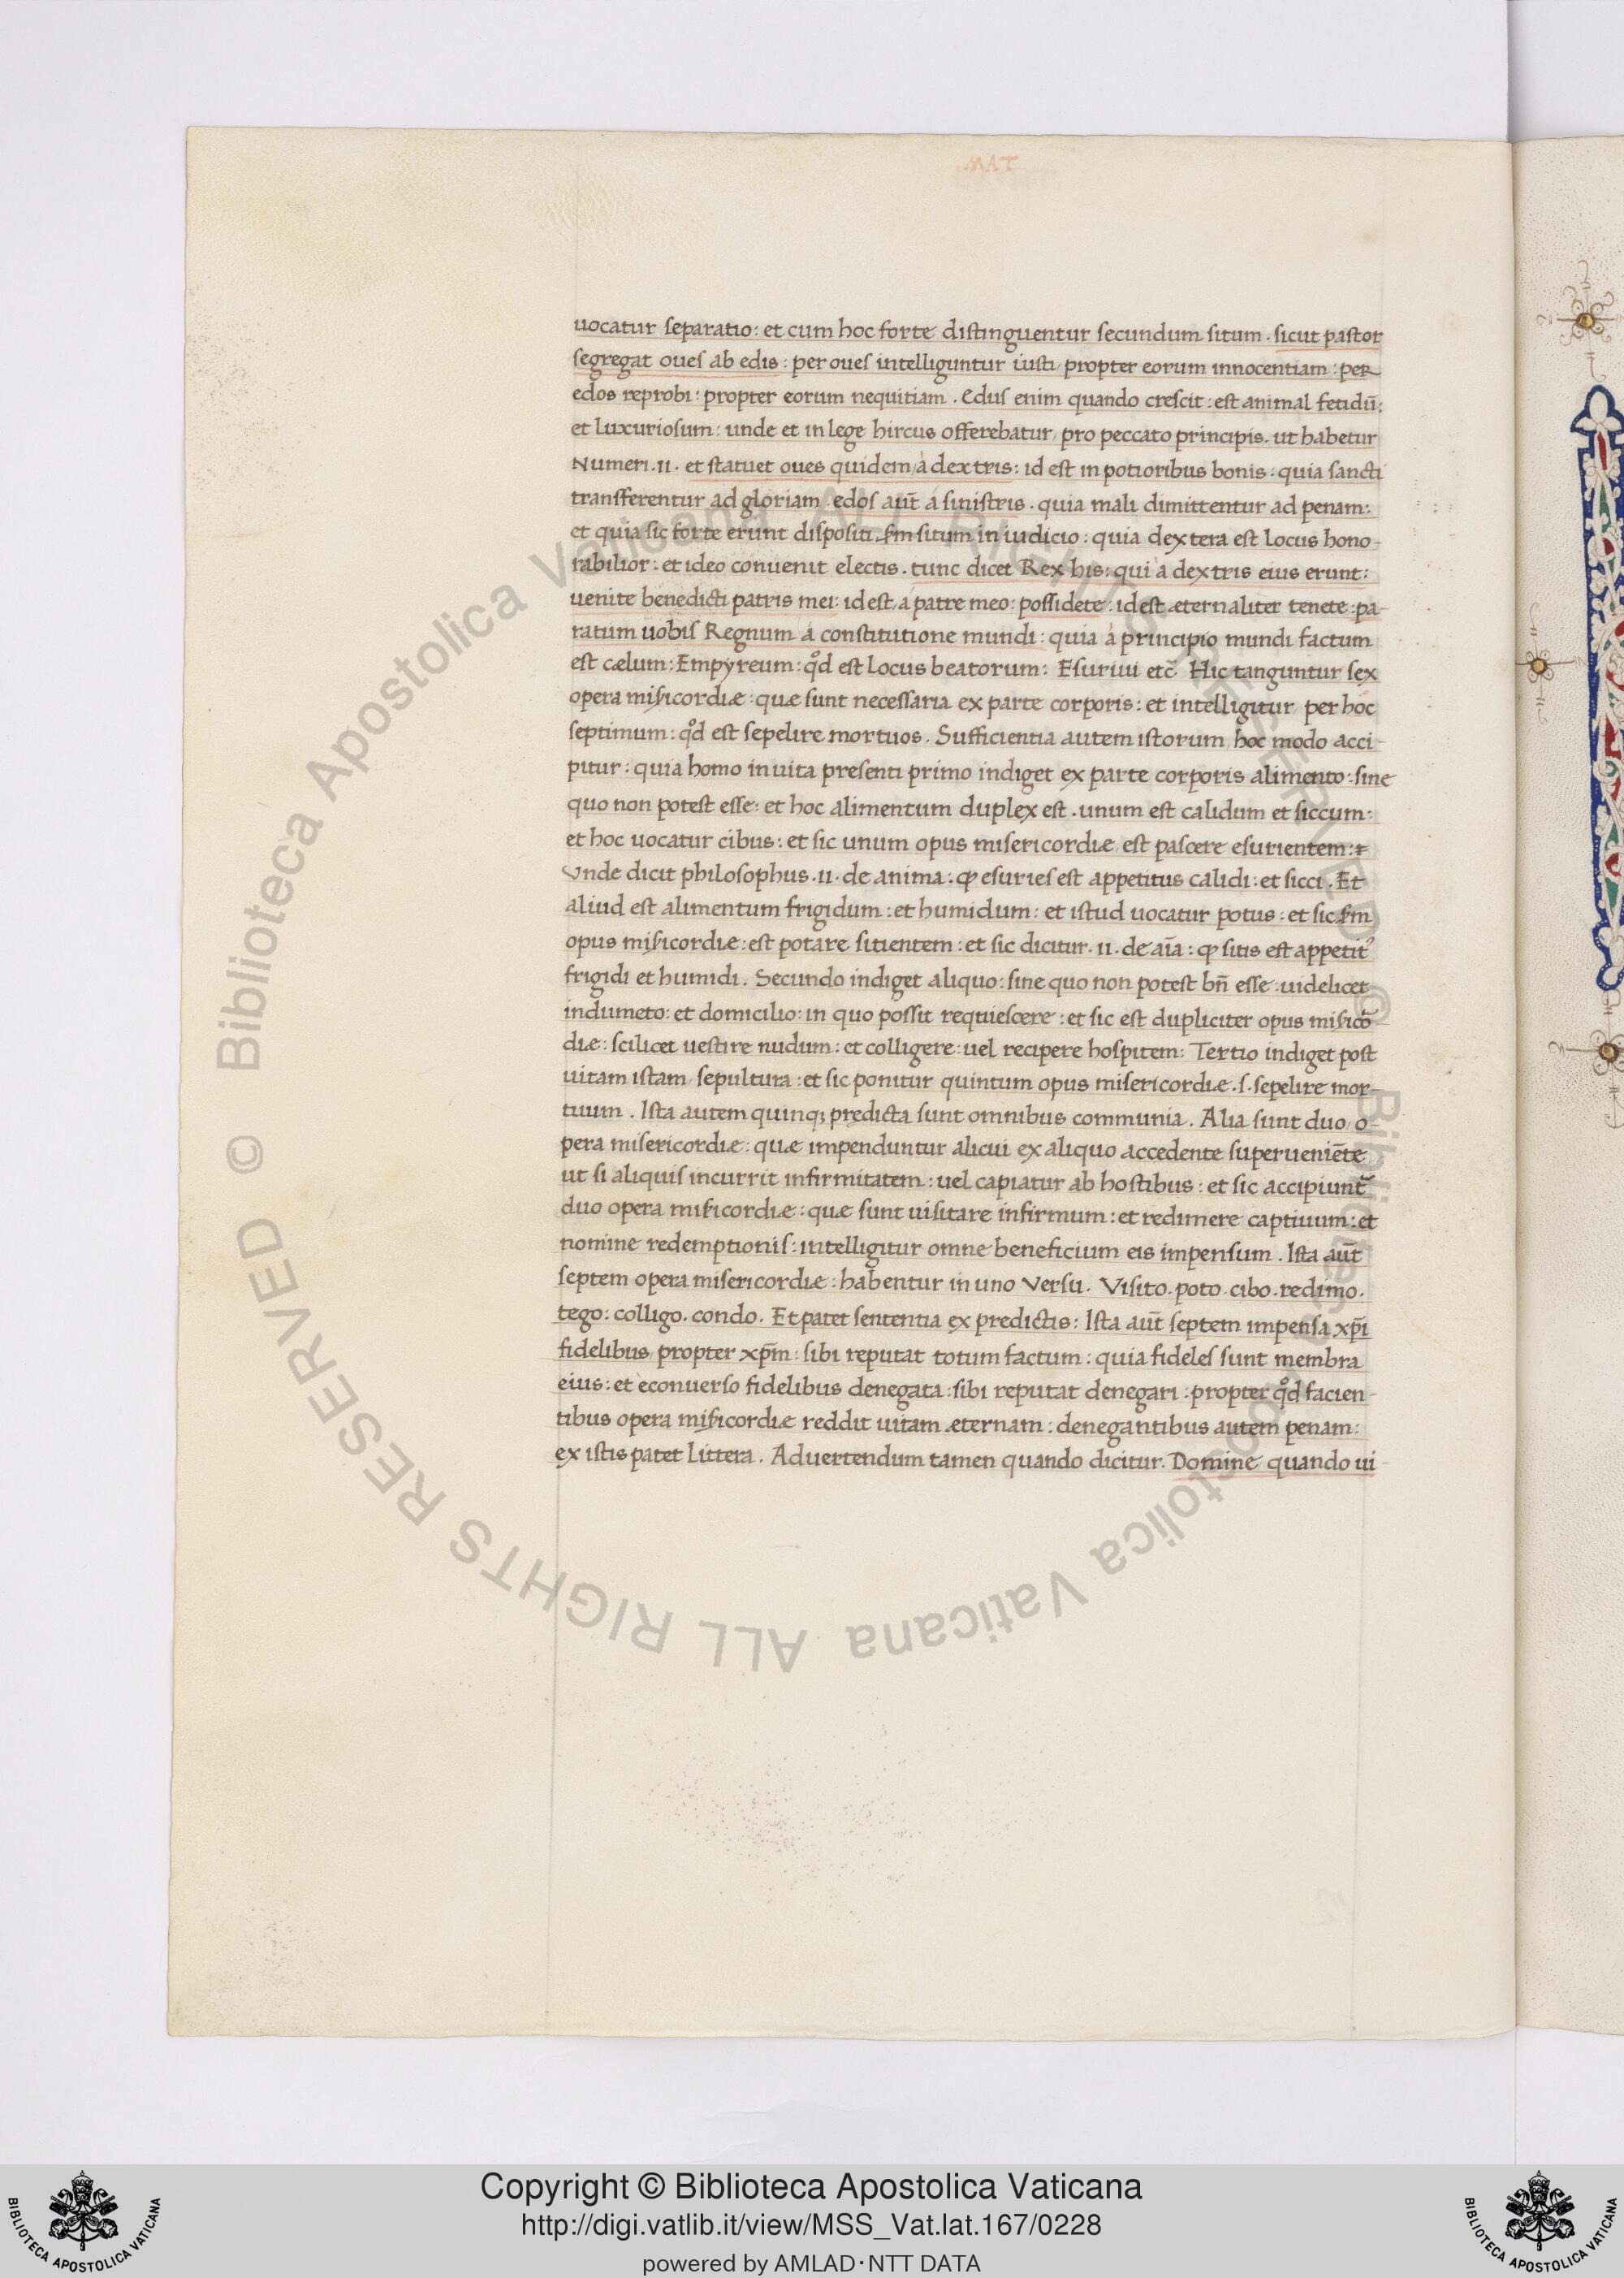 .MAT
uocatur separatio: et cum hoc forte distinguentur secundum situm. sicut pastor
segregat oues ab edis: per oues intelliguntur iusti propter eorum innocentiam: per
edos reprobi: propter eorum nequitiam. Edus enim quando crescit: est animal fetidū:
et luxuriosum: unde et in lege hircus offerebatur pro peccato principis. ut habetur
Numeri .II. et statuet oues quidem à dextris: id est in potioribus bonis: quia sancti
transferentur ad gloriam. edos aūt a sinistris. quia mali dimittentur ad penam:
et quia sic forte erunt dispositi. sm̄ situm in iudicio: quia dextera est locus hono-
rabilior: et ideo conuenit electis. tunc dicet Rex his: qui à dextris eius erunt:
uenite benedicti patris mei: id est, a patre meo: possidete: id est æternaliter tenete: pa-
ratum uobis Regnum à constitutione mundi: quia à principio mundi factum
est cælum: Empyreum: qd̊ est locus beatorum: Esuriui etc̄ Hic tanguntur sex
opera misicordiæ: quæ sunt necessaria ex parte corporis: et intelligitur per hoc
septimum: qd̊ est sepelire mortuos. Sufficientia autem istorum hoc modo acci-
pitur: quia homo in uita presenti primo indiget ex parte corporis alimento: sine
quo non potest esse: et hoc alimentum duplex est. unum est calidum et siccum:
et hoc uocatur cibus: et sic unum opus misericordiæ est pascere esurientem:
Vnde dicit philosophus .II. de anima: ꝙ esuries est appetitus calidi: et sicci. Et
aliud est alimentum frigidum: et humidum: et istud uocatur potus: et sic sm̄
opus misicordiæ: est potare sitientem: et sic dicitur .II. de aīa: ꝙ sitis est appetit᾽
frigidi et humidi. Secundo indiget aliquo: sine quo non potest bn̄ esse: uidelicet
indumeto: et domicilio: in quo possit requiescere: et sic est dupliciter opus misicō
diæ: scilicet uestire nudum: et colligere: uel recipere hospitem: Tertio indiget post
uitam istam sepultura: et sic ponitur quintum opus misericordiæ .s. sepelire mor-
tuum. Ista autem quinqꝫ predicta sunt omnibus communia. Alia sunt duo o-
pera misericordiæ: quæ impenduntur alicui ex aliquo accedente superueniēte
ut si aliquis incurrit infirmitatem: uel capiatur ab hostibus: et sic accipiunt᷑
duo opera misicordiæ: quæ sunt uisitare infirmum: et redimere captiuum: et
nomine redemptionis: intelligitur omne beneficium eis impensum. Ista aūt
septem opera misericordiæ: habentur in uno Versu. Visito. poto. cibo. redimo.
tego: colligo. condo. Et patet sententia ex predictis: Ista aūt septem impensa xp̄i
fidelibus propter xp̄m: sibi reputat totum factum: quia fideles sunt membra
eius: et econuerso fidelibus denegata: sibi reputat denegari: propter qd̊ facien-
tibus opera misicordiæ reddit uitam æternam: denegantibus autem penam:
ex istis patet littera. Aduertendum tamen quando dicitur. Domine quando ui-
© Biblioteca Apostolica Vaticana ALL RIGHTS RESERVED © Biblioteca Apostolica Vaticana ALL RIGHTS RESERVED
Copyright © Biblioteca Apostolica Vaticana
http://digi.vatlib.it/view/MSS_Vat.lat.167/0228
powered by AMLAD·NTT DATA
BIBLIOTECA APOSTOLICA VATICANA
BIBLIOTECA APOSTOLICA VATICANA